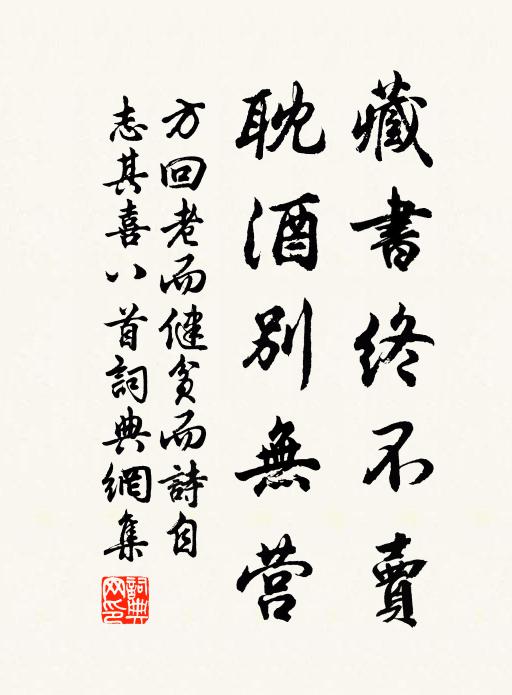 藏書終不賣
耽酒別無营
方回老而健貧而詩自
志其喜八首詞典網集
詞典網印